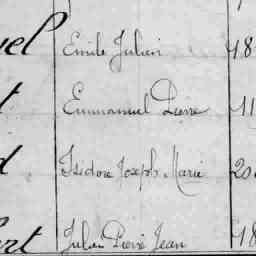 el Emile Julien 48
t Emmanuel Pierre 11
d Isidore Joseph Marie 20
ert Julien Pierre Jean 48